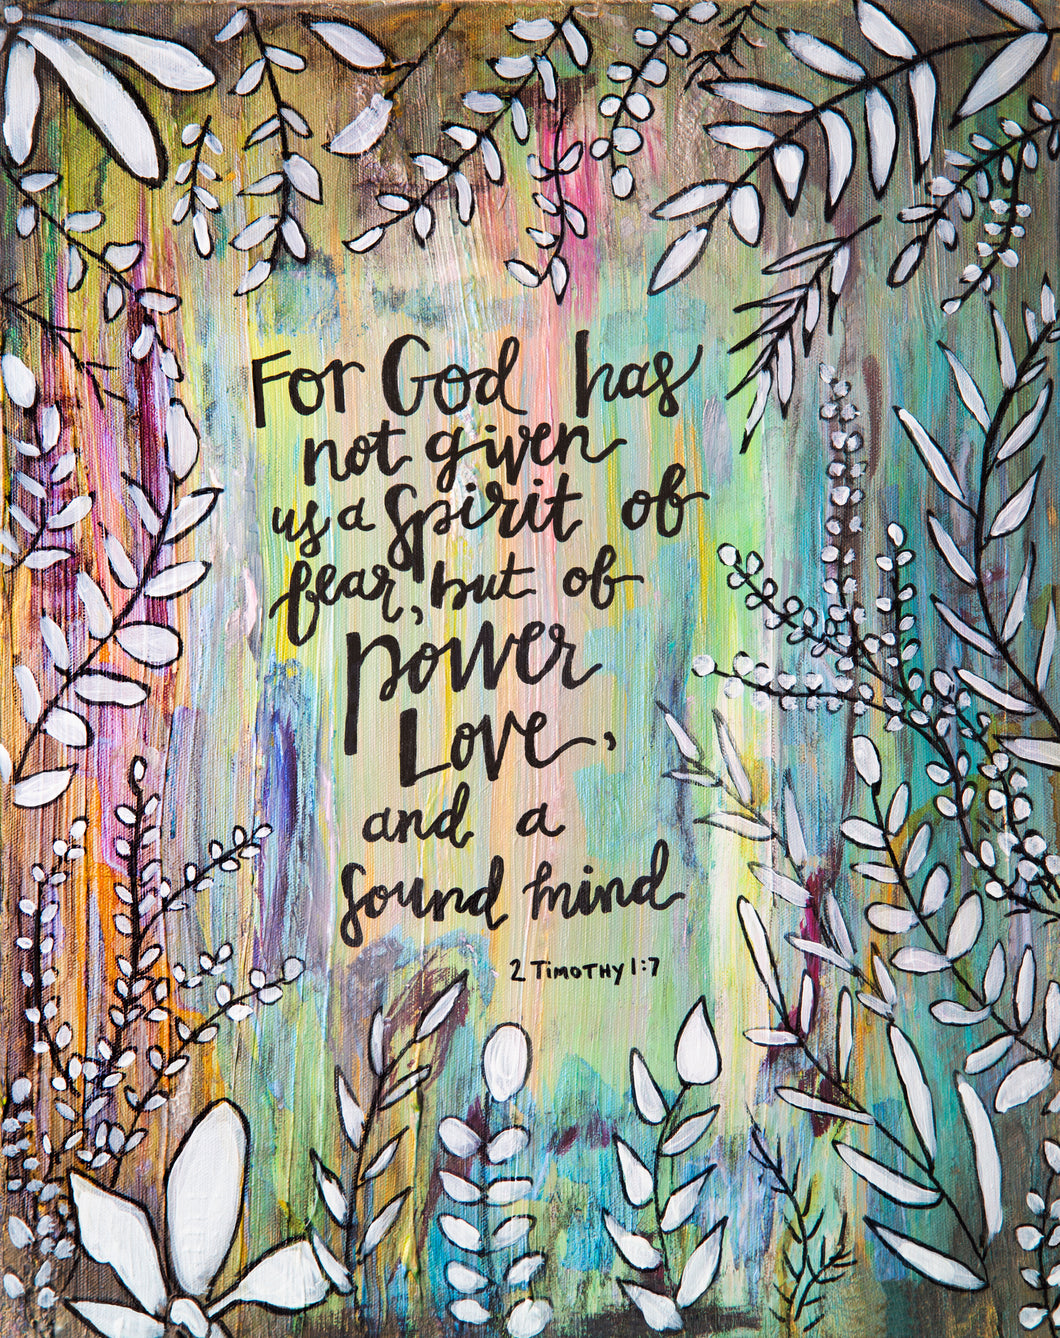 For God has
not given
us a spirit of
fear, but of
power
Love,
and a
sound mind
2 TIMOTHY 1:7